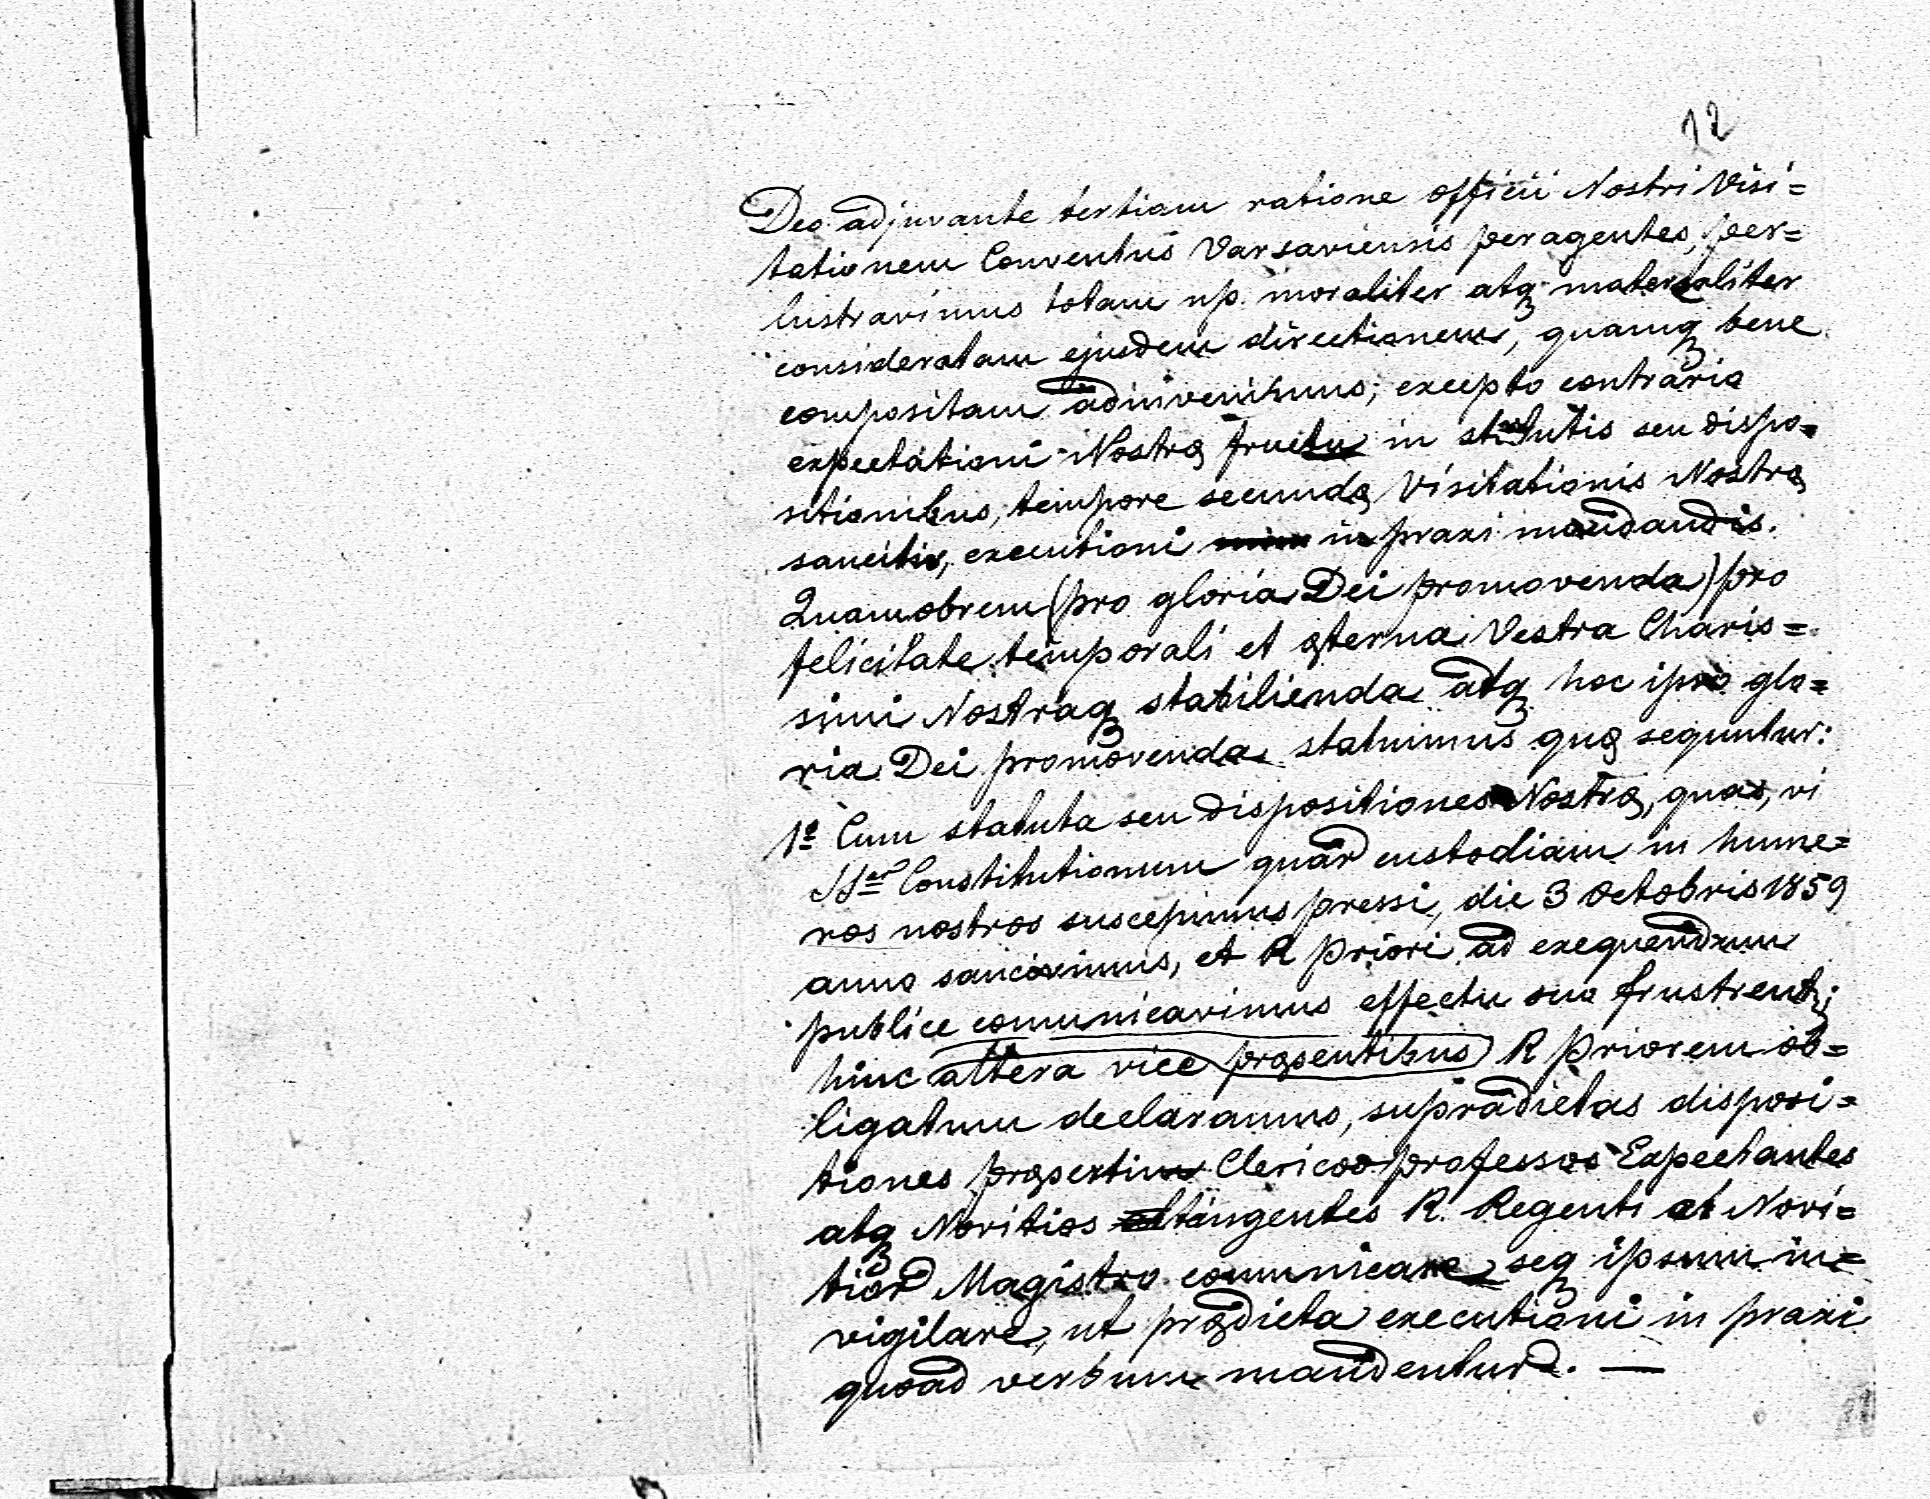 12
Deo adjuvante tertiam ratione officii Nostri Visi=
tationem Conventus Varsaviensis peragentes, per=
lustravimus totam up. moraliter atq materialiter
consideratam ejusdem directionem, quamq bene
compositam adinvenimus; excepto contrario
expectationi Nostrę fructu in statutis seu dispo=
sitionibus, tempore secundę Visitationis Nostrę
sancitis, executioni in praxi mandandis.
Quamobrem (pro gloria Dei promovenda) pro
felicitate temporali et ęterna Vestra Charis=
simi Nostraq stabilienda atq hoc ipso glo=
ria Dei promovenda statuimus quę sequntur:
1º Cum statuta seu dispositiones Nostrę, quas, vi
SSar Constitutionum quar custodiam in hume=
ros nostros suscepimus pressi, die 3 Octobris 1859
anno sancivimus, et R Priori ad exequendum
publice comunicavimus effectu suo frustrent;
hinc altera vice pręsentibus R Priorem ob=
ligatum declaramus, supradictas disposi=
tiones pręsertim Clericos professos Expectantes
atq Novitios attingentes R. Regenti et Novi=
tior Magistro comunicare, seq ipsum in=
vigilare, ut prędicta executioni in praxi
quoad verbum mandentur. —